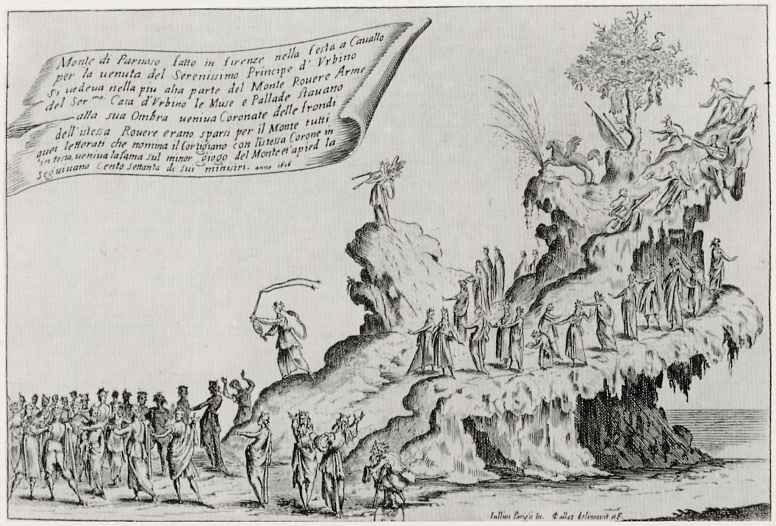 Monte di Parnaso fatto in firenze nella festa a Cavallo
per la venuta del Serenissimo Principe d'Urbino
Si vedeva nella piu alta parte del Monte Rovere Arme
del Ser.mo Casa d'Urbino le Muse e Pallade stavano
alla sua Ombra veniva Coronate delle frondi
dell'istessa Rovere erano sparsi per il Monte tutti
quei letterati che nomina il Cortigiano con l'istessa Corone in
testa, veniva la fama sul minor giogo del Monte et a pied la
seguivano Cento settanta di sui ministri. anno 1616
Iullius Parigii In. Callot delineavit et F.